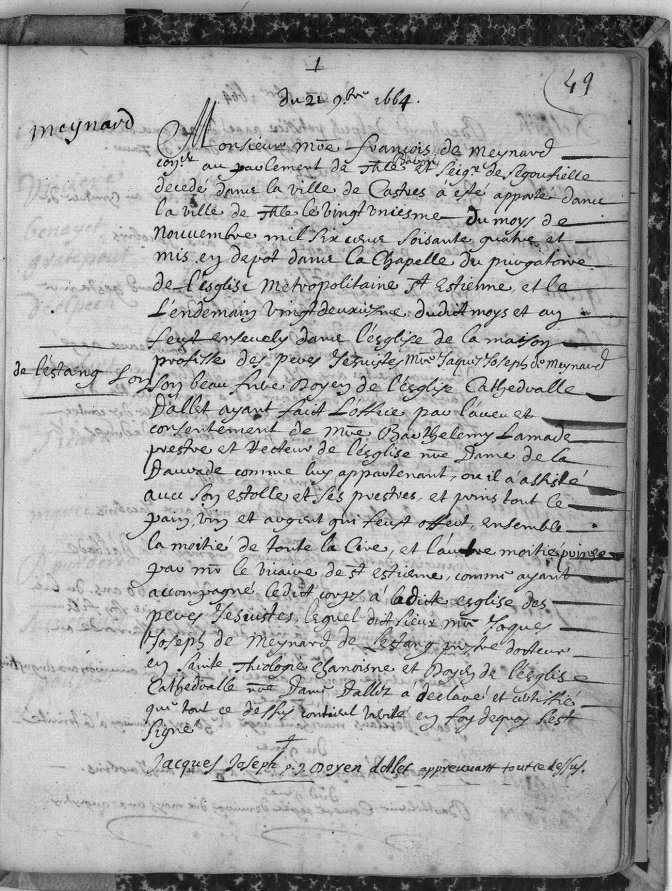 1
49
du 21 9bre 1664.
meynard
Monsieur Mre françois de Meynard
conser au parlement de Thle Baron et Seigr de Segoufielle
decede dans la ville de Castres a esté apporté dans
la ville de Thle le vingt vniesme du moys de
Nouuembre mil six cens soisante quatre et
mis en depot dans la Chapelle du purgatoire
de L'esglise Metropolitaine St Estienne, et le
L'endemain vingtdeuxiesme dudit moys et an
feust enseuely dans l'esglise de la maison
professe des peres Jesuistes Mre Jaques Joseph de Meynard
de l'estang son
son beau frere Doyen de l'Esglise Cathedralle
D'allet ayant fait L'office par l'aueu et
consentement de Mre Barthelemy Lamade
prestre et Recteur de l'esglise nre Dame de la
Daurade comme luy appartenant, ou il a assisté
auec son estolle et ses prestres, et prins tout le
pain, vin et argent qui feust offert, ensemble
la moitié de toute la Cire, et l'autre moitié prinse
par mr le vicaire de st estienne, comme ayant
accompagné ledict corps a ladicte esglise des
peres Jesuistes, lequel dit sieur mre Jaques
Joseph de Meynard de Lestang prestre docteur
en Sainte Theologie Chanoisne et Doyen de l'esglise
Cathedralle nre Dame Dallet a declaré et
que tout ce dessus contient verité en foy dequoy s'est
signé
Jacques Joseph p. Doyen dallet approuuant tout ce dessus.